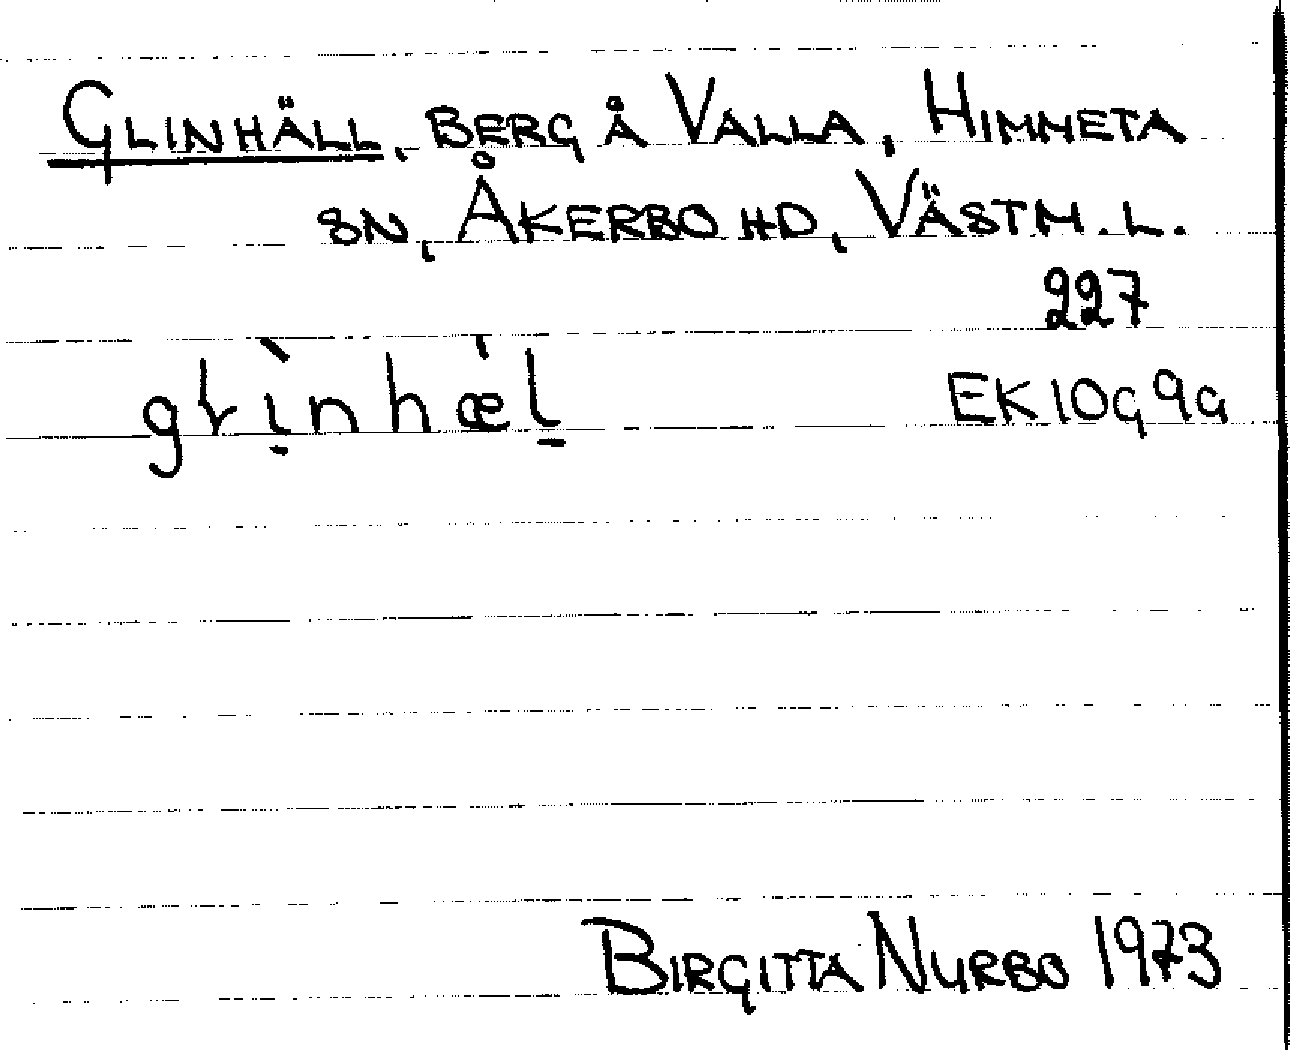 GLINHÄLL, BERG Å VALLA, HIMMETA
SN, ÅKERBO HD, VÄSTM. L.
227
EK10g9a
BIRGITTA NURBO 1973